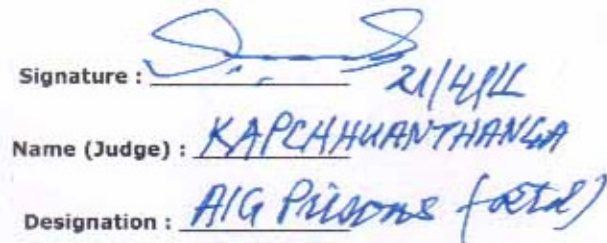 Signature :
21/4/22
Name (Judge) : KAPCHHUANTHANGA
Designation : AIG Prisons (retd)